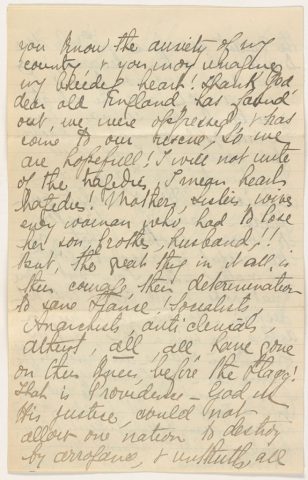 you know the anxiety of my
country & you may imagine
my bleeding heart! Thank God
dear old England has found
out, we were oppressed, & has
come to our rescue, so we
are hopefull! I will not write
of the tragedies, I mean hearts
tragedies! Mothers, sisters, wives
every woman who had to lose
her son, brother, husband!!
But, the great thing in it all, is
their courage, their determination
to save France. Socialists,
Anarchists, anti clericals,
atheist, all, all have gone
on their knees, before the Flagg!
that is Providence - God in
His justice, could not
allow one nation to destroy
by arrogance, & untruths, all